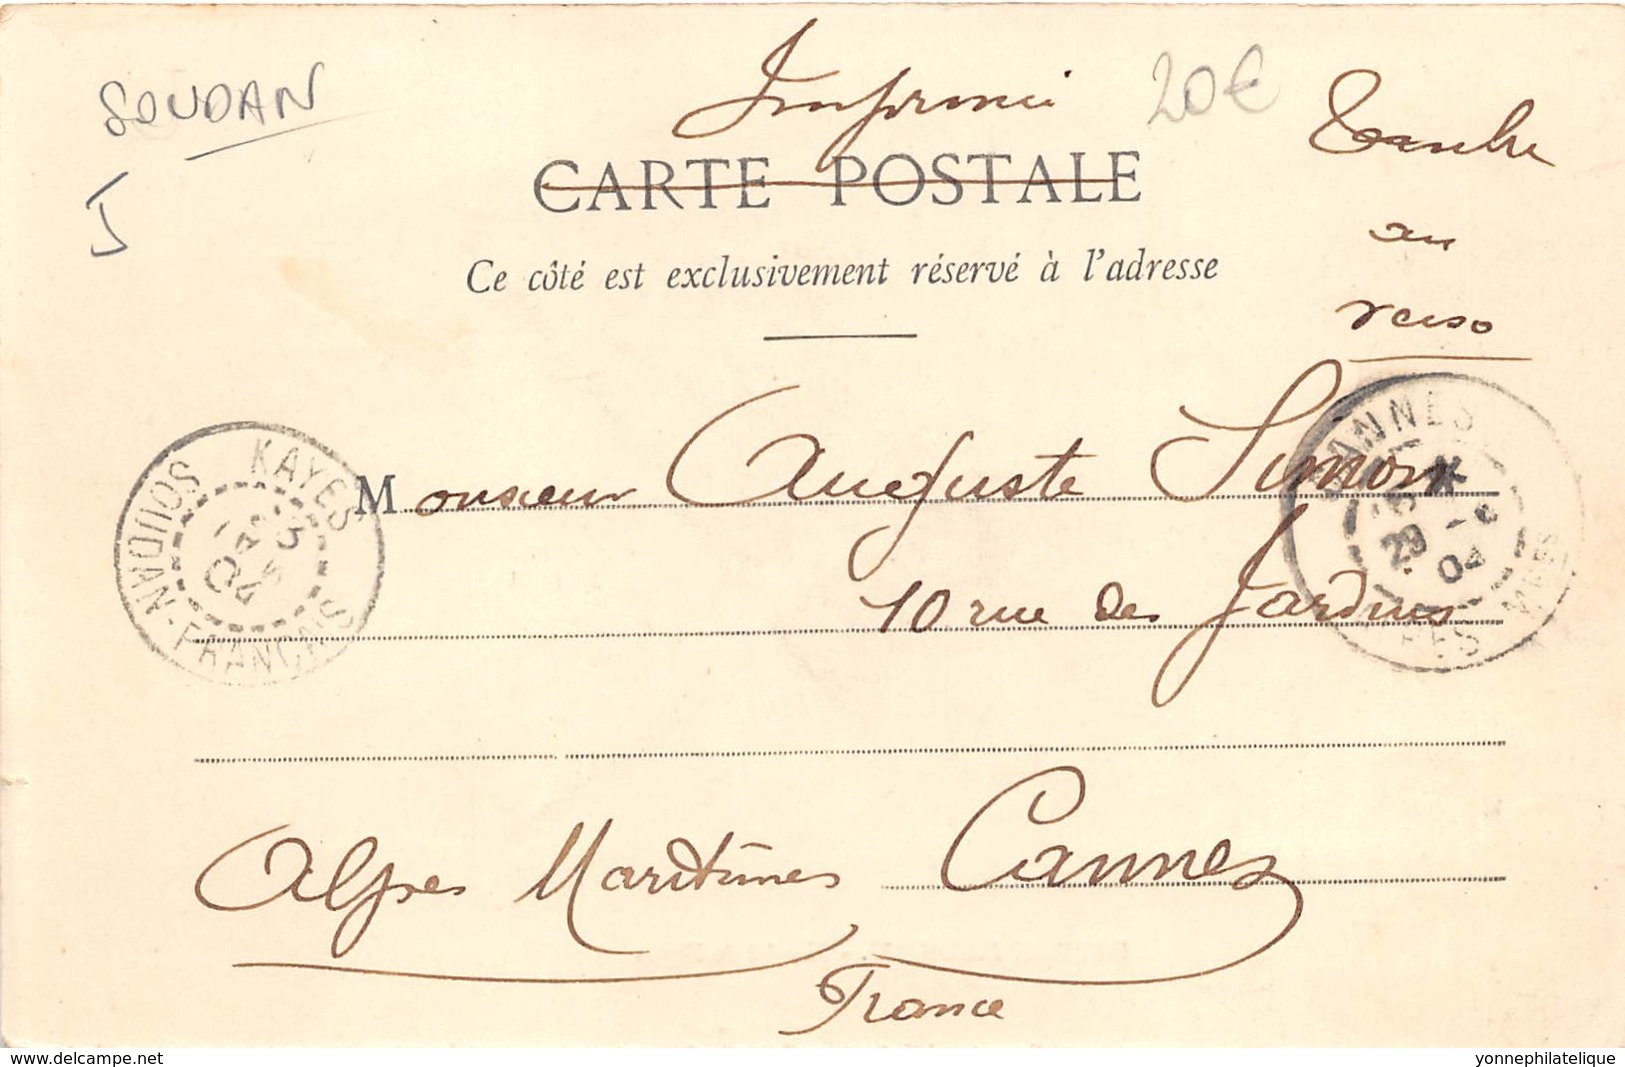 SOUDAN
Imprimé
20€
Timbre
au
verso
CARTE POSTALE
Ce côté est exclusivement réservé à l'adresse
KAYES
SOUDAN-FRANÇAIS
CANNES
29
04
Monsieur Auguste Simon
10 rue des Jardins
Alpes Maritimes Cannes
France
www.delcampe.net
yonnephilatelique